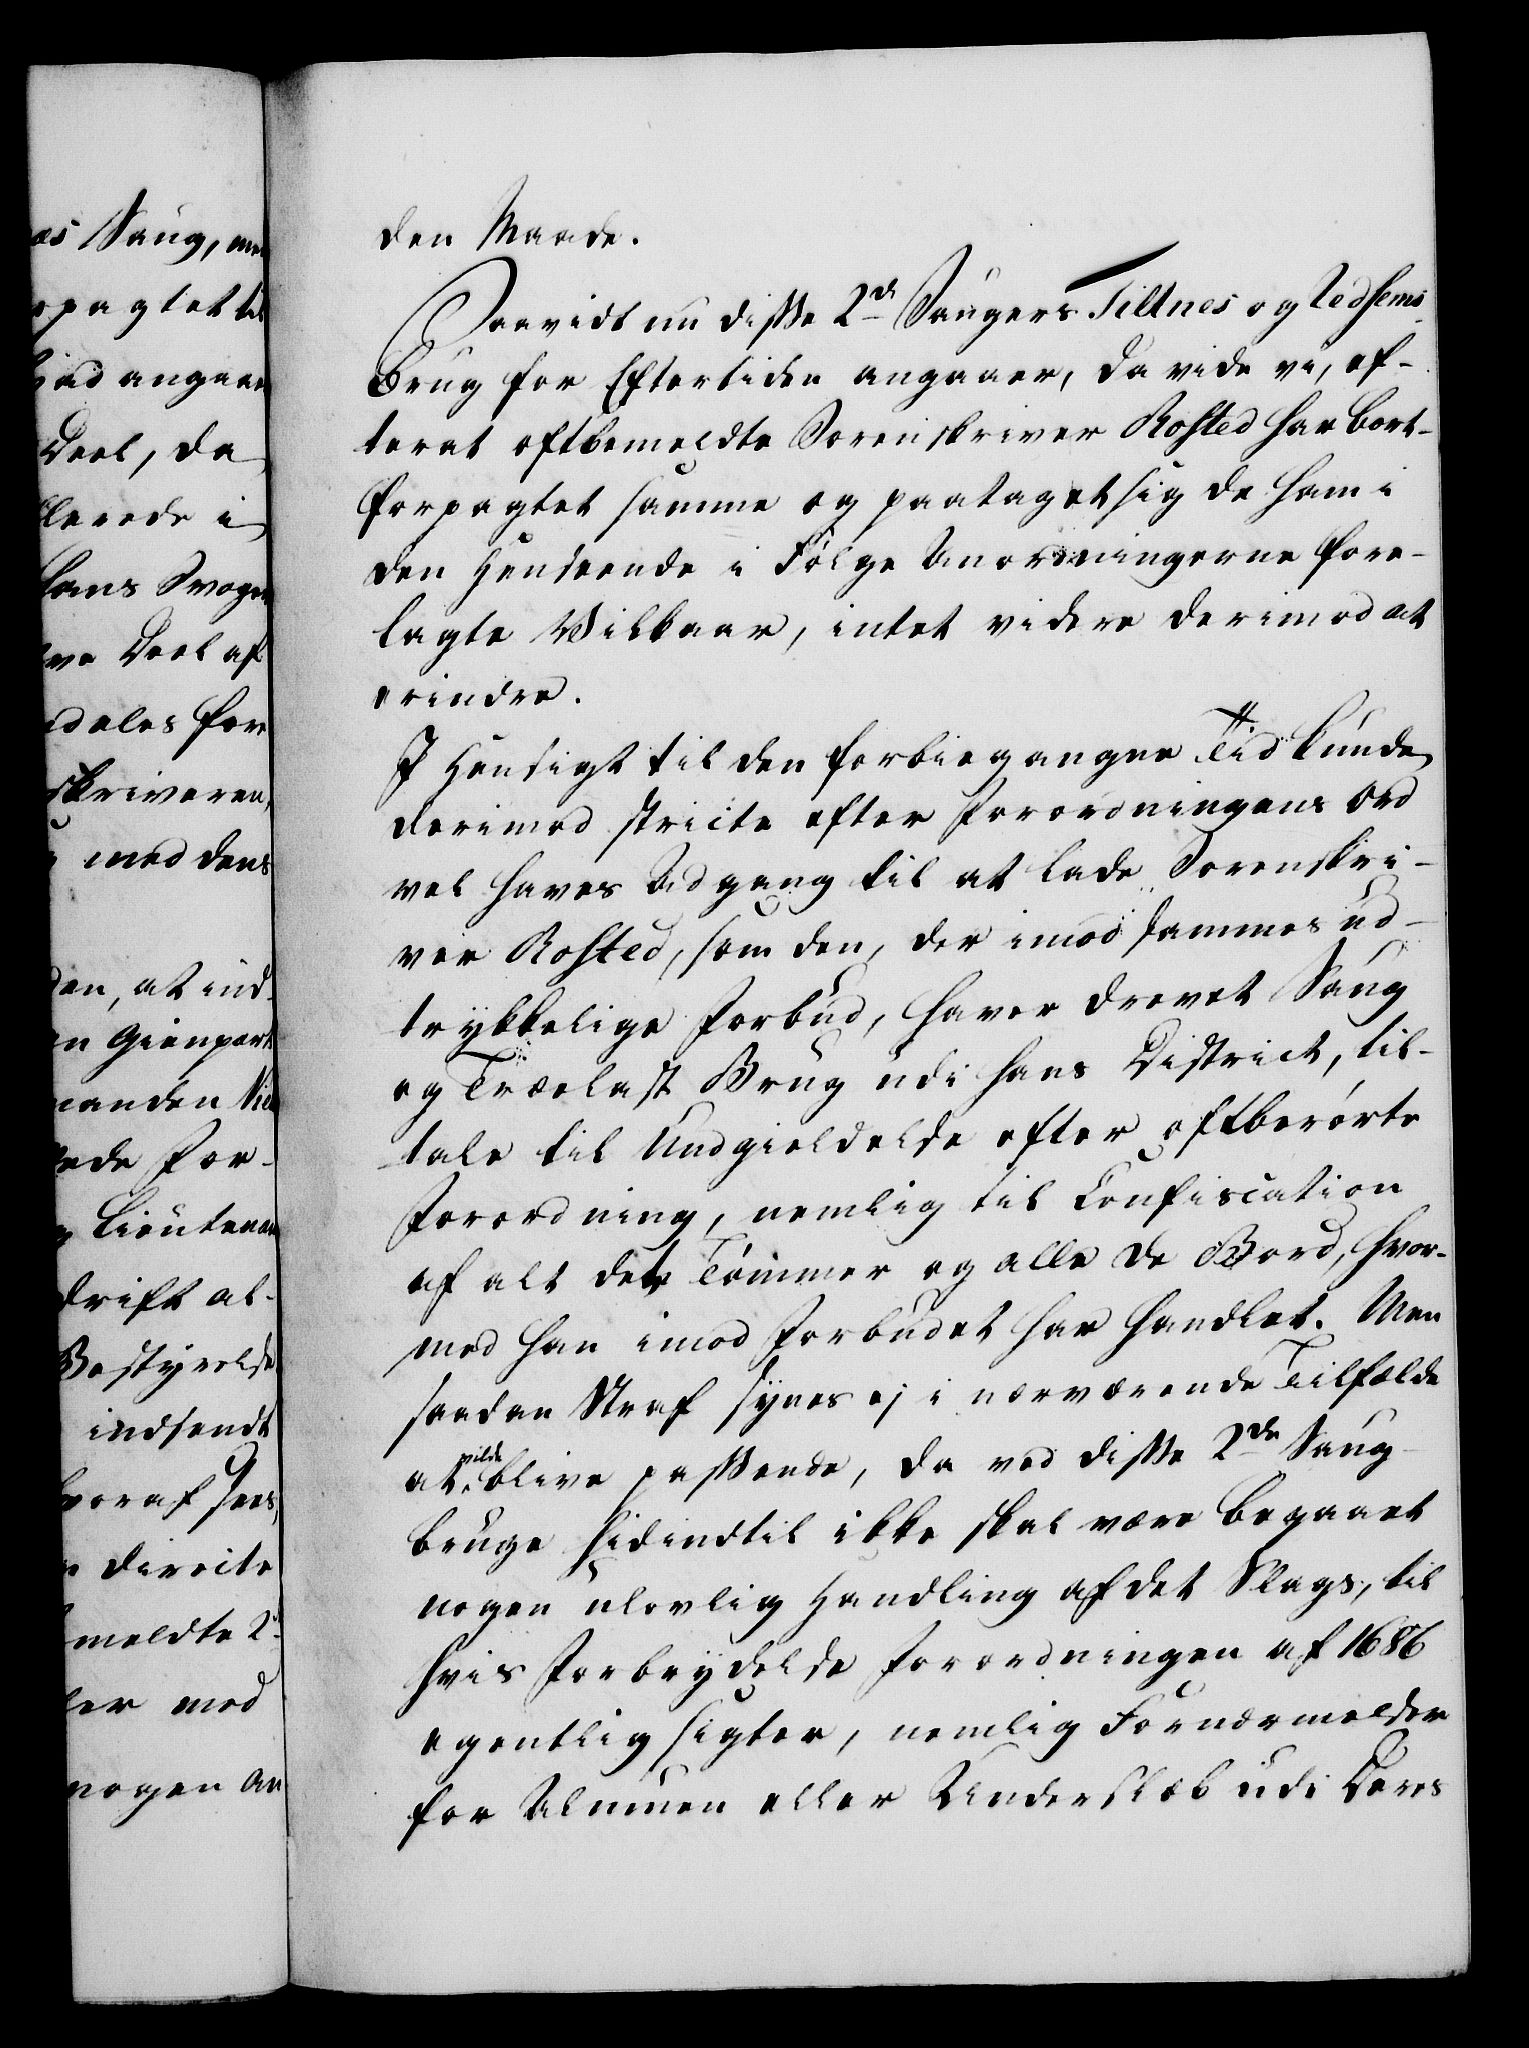 æs Saug, men
rpagtet til
ad angaaer
Deel, da
llerede i
hans Svoger
lve Deel af
deles for
skriveren,
med dens
den, at ind-
n Gienpart
manden Nie
ede For-
Lieutenan
drift al-
Bestyrelse
indsendt
hvoraf sees,
directe
meldte 2de
ler med
nogen An
den Maade.
Saavidt nu disse 2de Saugers Tiltnes og Tedsems
Brug for Eftertiden angaaer, da vide vi, ef-
terat oftbemeldte Sorenskriver Rosted har bort-
forpagtet samme og paataget sig de ham i
den Henseende i Følge Anordningerne fore-
lagte Vilkaar, intet videre derimod at
erindre.
I Hensigt til den forbiegangne Tid kunde
derimod stricte efter Forordningens Ord
vel haves Adgang til at lade Sorenskri-
ver Rosted, som den, der imod sammes ud-
trykkelige Forbud, haver drevet Saug
og Trælast Brug udi hans District, til-
tale til Undgieldelse efter oftberørte
Forordning, nemlig til Confiscation
af alt det Tømmer og alle de Bord, hvor-
med han imod Forbudet har handlet. Men
saadan Straf synes ej i nærværende Tilfælde
at vilde blive passende, da ved disse 2de Saug-
bruge hidindtil ikke skal være begaaet
nogen ulovlig Handling af det Slags, til
hvis Forbrydelse Forordningen af 1686
egentlig sigter, nemlig Fornærmelser
for Almuen eller Underslæb udi Deres